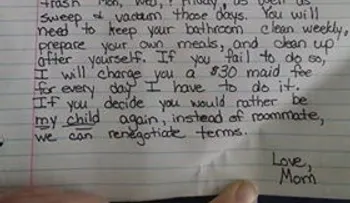 trash Mon, Wed, & Friday, as well as
sweep & vacuum those days. You will
need to keep your bathroom clean weekly,
prepare your own meals, and clean up
after yourself. If you fail to do so,
I will charge you a $30 maid fee
for every day I have to do it.
If you decide you would rather be
my child again, instead of roommate,
we can renegotiate terms.
Love,
Mom